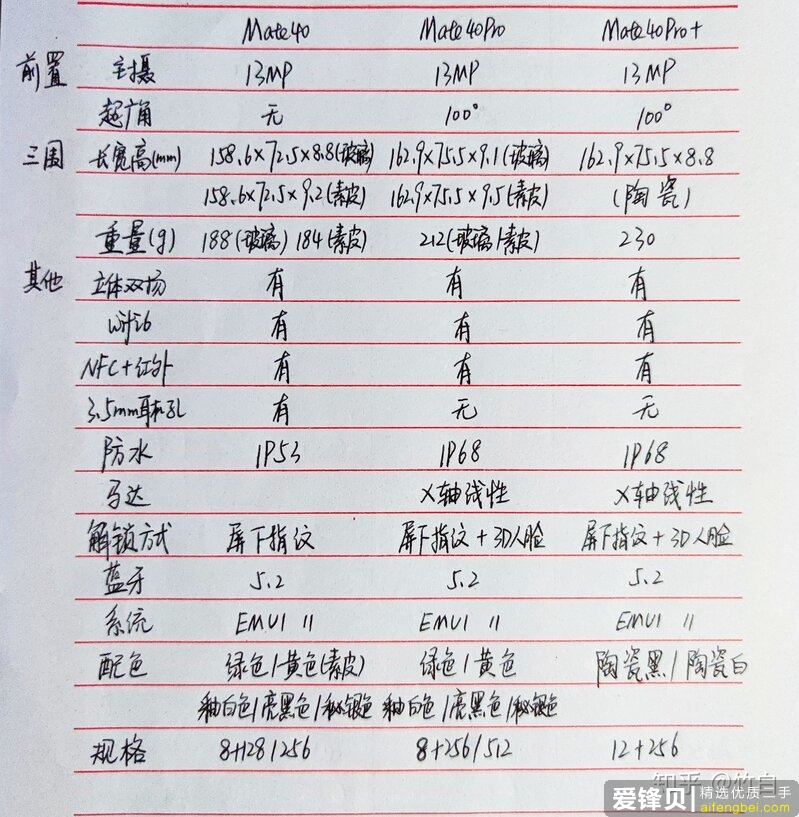 Mate40 Mate40Pro Mate40Pro+
前置 主摄 13MP 13MP 13MP
超广角 无 100° 100°
三围 长宽高(mm) 158.6×72.5×8.8(玻璃) 162.9×75.5×9.1(玻璃) 162.9×75.5×8.8
158.6×72.5×9.2(素皮) 162.9×75.5×9.5(素皮) (陶瓷)
重量(g) 188(玻璃) 184(素皮) 212(玻璃/素皮) 230
其他 立体双扬 有 有 有
wifi6 有 有 有
NFC+红外 有 有 有
3.5mm耳机孔 有 无 无
防水 IP53 IP68 IP68
马达 X轴线性 X轴线性
解锁方式 屏下指纹 屏下指纹+3D人脸 屏下指纹+3D人脸
蓝牙 5.2 5.2 5.2
系统 EMUI 11 EMUI 11 EMUI 11
配色 绿色/黄色(素皮) 绿色/黄色 陶瓷黑/陶瓷白
釉白色/亮黑色/秘银色 釉白色/亮黑色/秘银色
规格 8+128/256 8+256/512 12+256
知乎 @竹白
爱锋贝 精选优质二手
aifengbei.com